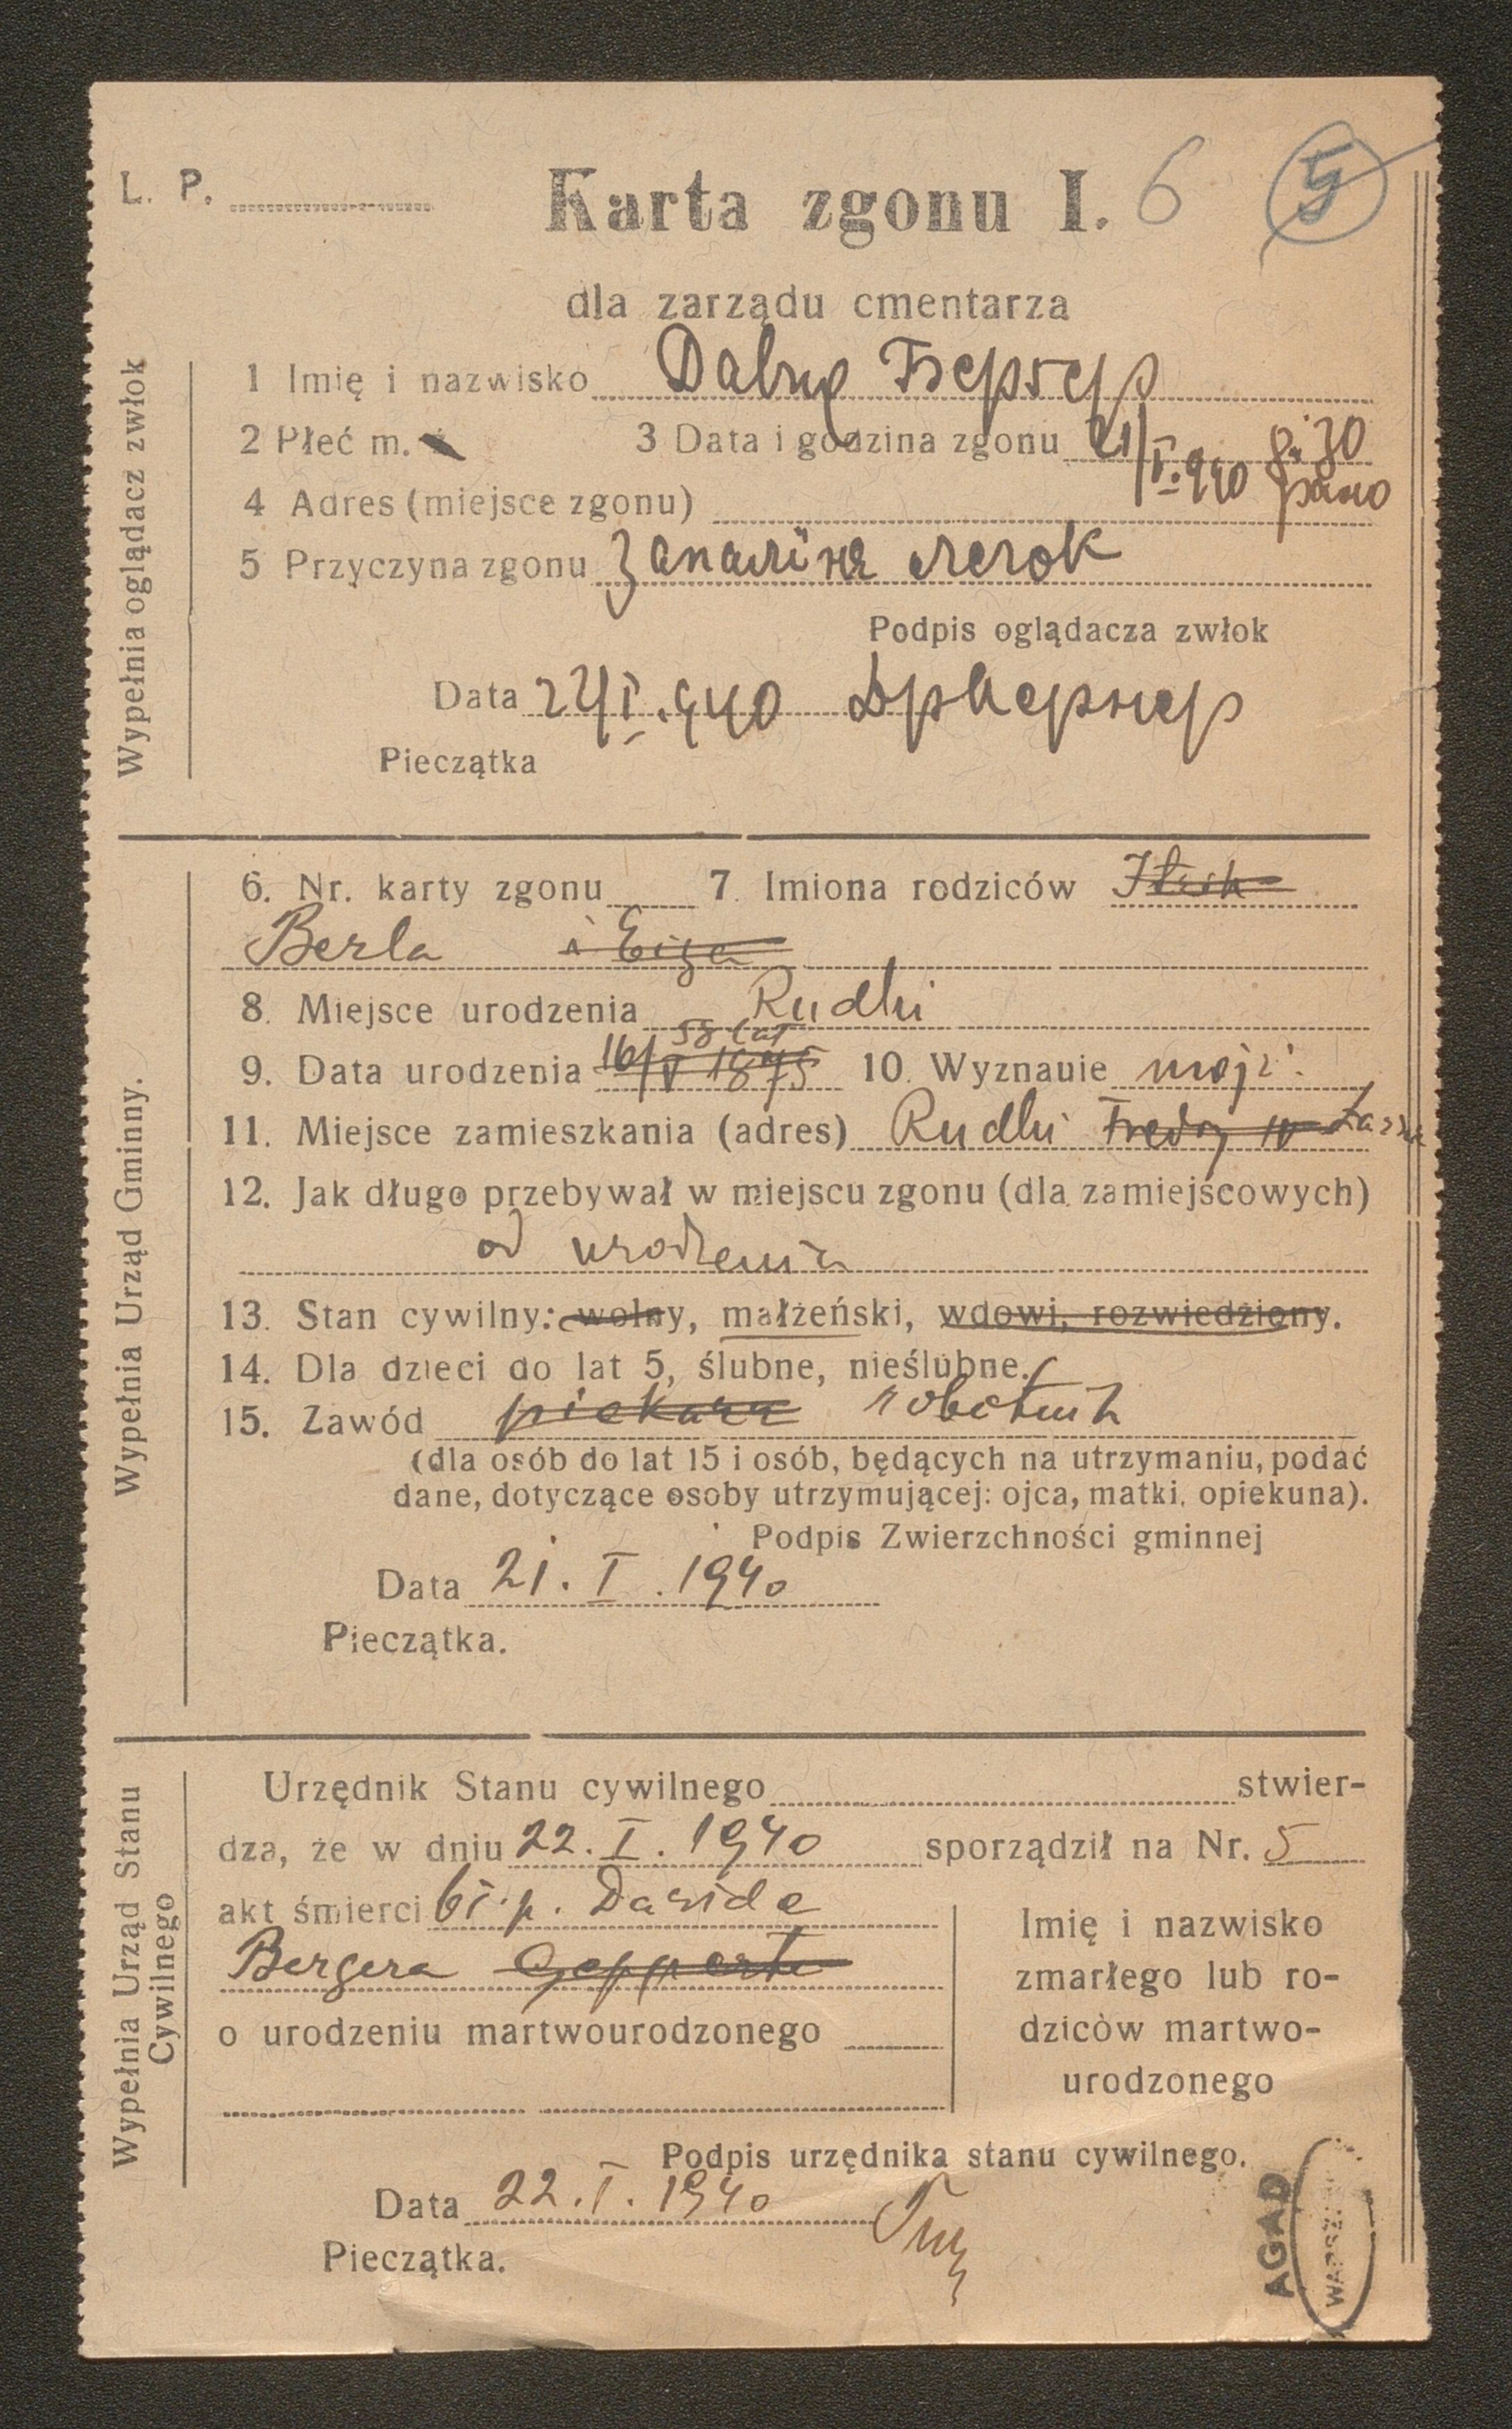 L. P.
Karta zgonu I. 6 5
dla zarządu cmentarza
1 Imię i nazwisko Давид Бергер
2 Płeć m. 3 Data i godzina zgonu 21/I.940 g. 30
рано
4 Adres (miejsce zgonu)
5 Przyczyna zgonu Запалінє легок
Podpis oglądacza zwłok
Data 21/I.940
Pieczątka
Wypełnia oglądacz zwłok
6. Nr. karty zgonu 7. Imiona rodziców
Berla i Eiga
8. Miejsce urodzenia Rudki
58 lat
9. Data urodzenia 16/V 1875 10. Wyznanie mojż.
11. Miejsce zamieszkania (adres) Rudki Fredry
12. Jak długo przebywał w miejscu zgonu (dla zamiejscowych)
od urodzenia
13. Stan cywilny: wolny, małżeński, wdowi, rozwiedziony.
14. Dla dzieci do lat 5, ślubne, nieślubne.
15. Zawód piekarz robotnik
(dla osób do lat 15 i osób, będących na utrzymaniu, podać
dane, dotyczące osoby utrzymującej: ojca, matki, opiekuna).
Podpis Zwierzchności gminnej
Data 21. I. 1940
Pieczątka.
Wypełnia Urząd Gminny.
Urzędnik Stanu cywilnego stwier-
dza, że w dniu 22. I. 1940 sporządził na Nr. 5
akt śmierci śp. Dawida
Bergera Gepperta
o urodzeniu martwourodzonego
Imię i nazwisko
zmarłego lub ro-
dziców martwo-
urodzonego
Podpis urzędnika stanu cywilnego.
Data 22. I. 1940
Pieczątka.
Wypełnia Urząd Stanu
Cywilnego
AGAD
WARSZ